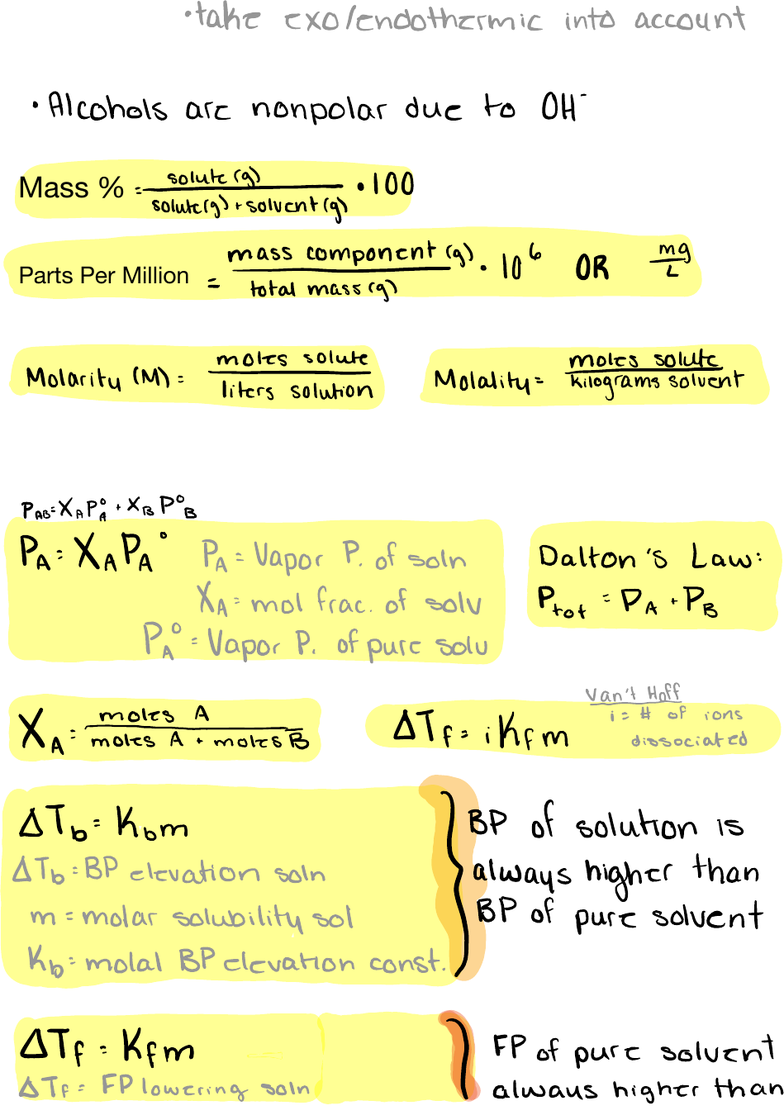 •take exo/endothermic into account
• Alcohols are nonpolar due to OH⁻
Mass % = solute (g) / solute(g) + solvent (g) • 100
Parts Per Million = mass component (g) / total mass (g) • 10⁶ OR mg / L
Molarity (M) = moles solute / liters solution
Molality = moles solute / kilograms solvent
P_AB = X_A P°_A + X_B P°_B
P_A = X_A P_A° P_A = Vapor P. of soln
X_A = mol frac. of solv
P_A° = Vapor P. of pure solv
Dalton's Law:
P_tot = P_A + P_B
X_A = moles A / moles A + moles B
ΔT_f = i K_f m
Van't Hoff
i = # of ions
dissociated
ΔT_b = K_b m
ΔT_b = BP elevation soln
m = molar solubility sol
K_b = molal BP elevation const.
BP of solution is
always higher than
BP of pure solvent
ΔT_f = K_f m
ΔT_f = FP lowering soln
FP of pure solvent
always higher than